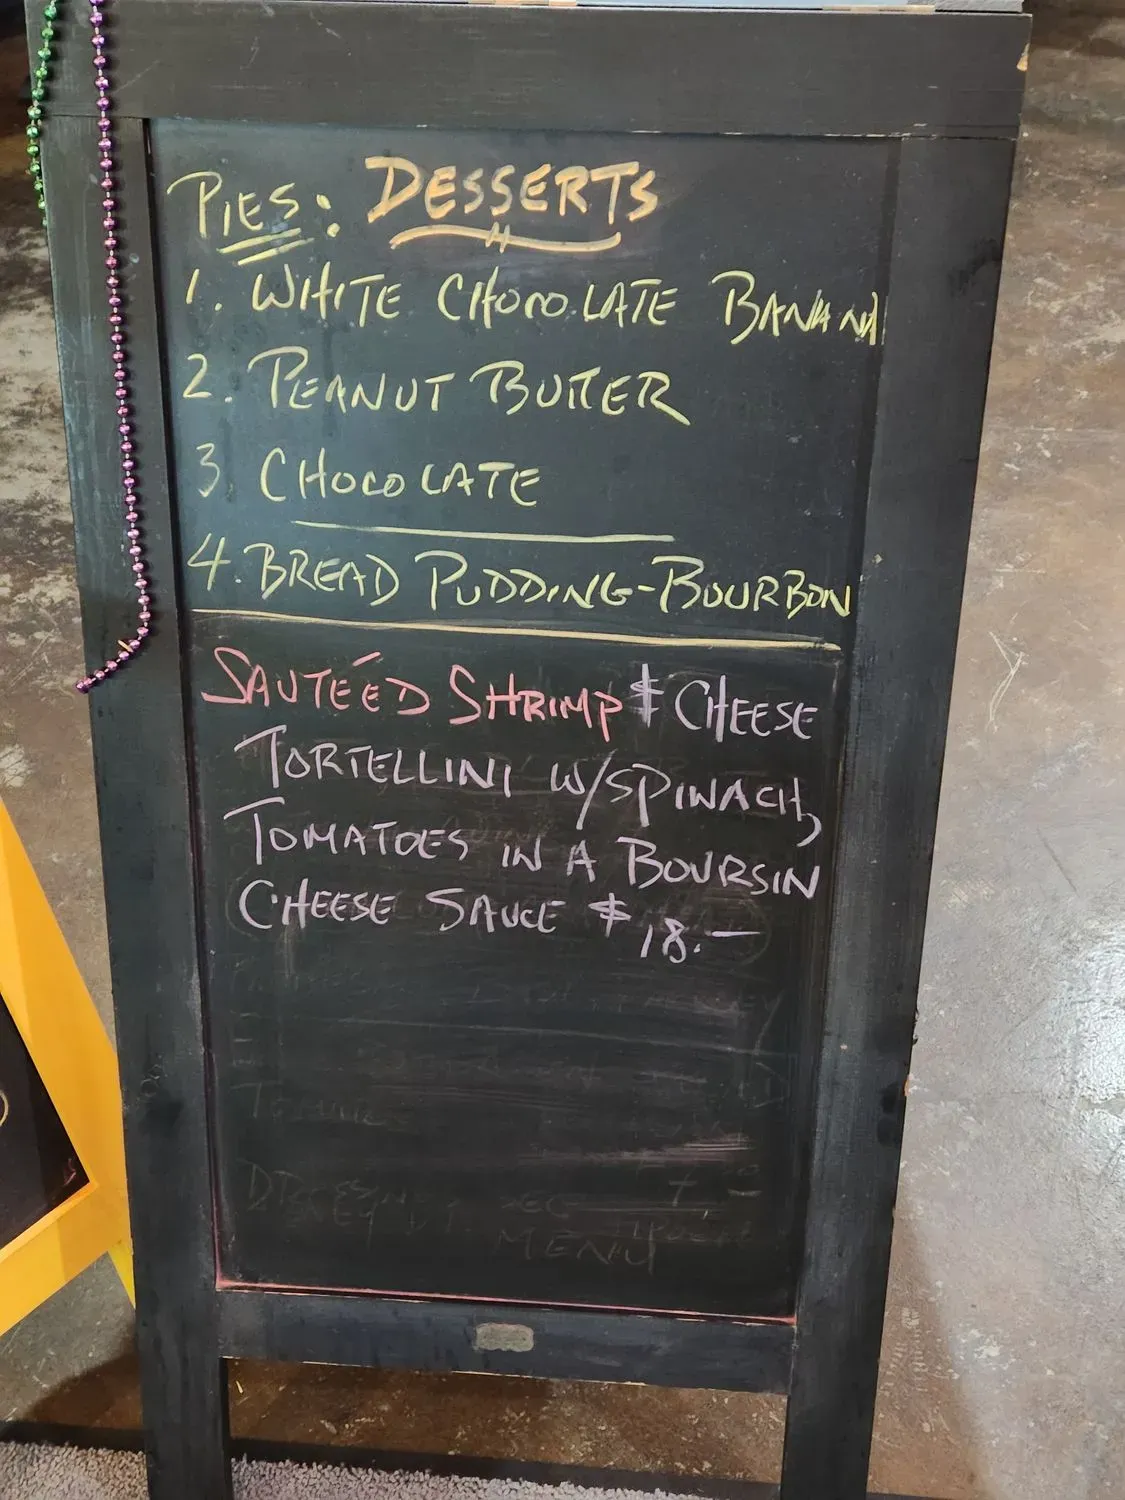 PIES: DESSERTS
1. WHITE CHOCOLATE BANANA
2. PEANUT BUTTER
3 CHOCOLATE
4. BREAD PUDDING-BOURBON
SAUTÉED SHRIMP & CHEESE
TORTELLINI W/SPINACH,
TOMATOES IN A BOURSIN
CHEESE SAUCE $18.—
MENU